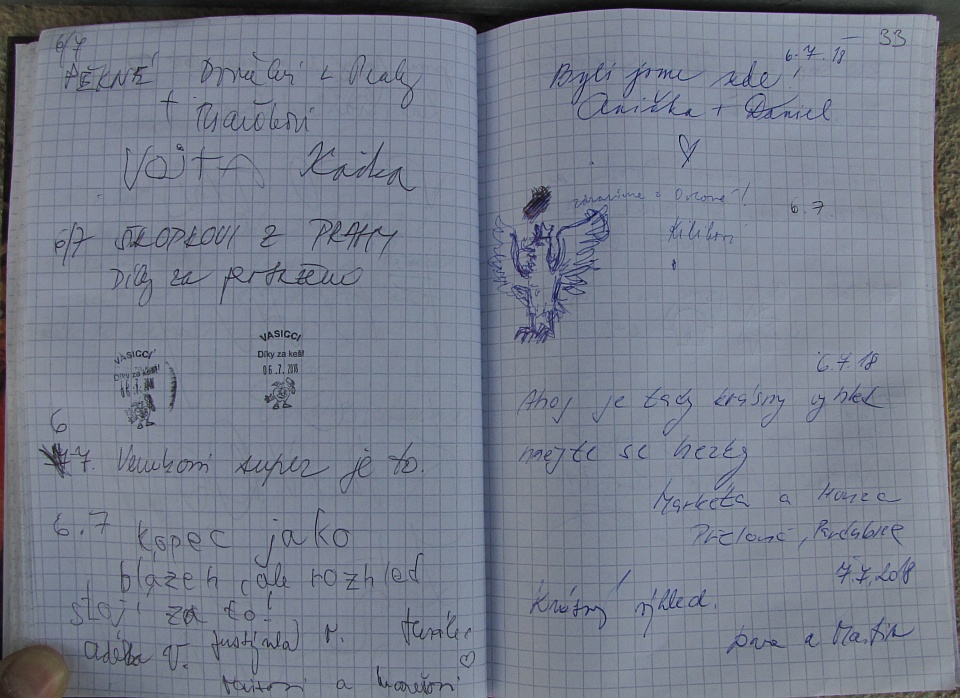 6/7
PĚKNÉ
+
Vojta Kačka
6/7 ŠKOPKOVI Z PRAHY
Díky za
VASICCI
Díky za keš!
06.7.2018
VASICCI
Díky za keš!
06.7.2018
6
7. super je to.
6.7 kopec jako
blázen, ale rozhled
stojí za to!
Adéla V. Justýna M.
a
33
6.7.18
Byli jsme zde!
Anička + Daniel
zdravíme z !
6.7
6.7.18
Ahoj je tady krásný výhled
mějte se hezky
Markéta a Honza
Přelouč, Pardubice
7.7.2018
Krásný výhled.
a Martin